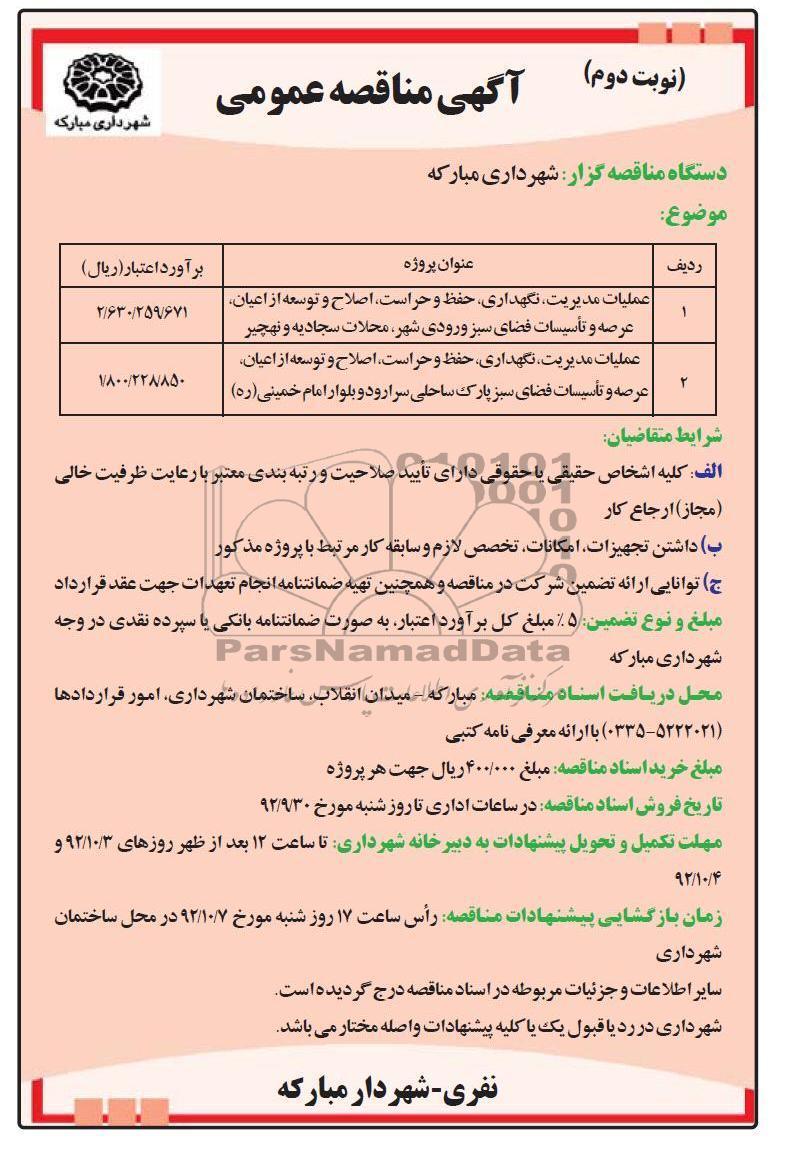 (نوبت دوم)
آگهی مناقصه عمومی
شهرداری مبارکه
دستگاه مناقصه گزار: شهرداری مبارکه
موضوع:
ردیف عنوان پروژه برآورد اعتبار(ریال)
۱ عملیات مدیریت، نگهداری، حفظ و حراست، اصلاح و توسعه از اعیان، ۲/۶۳۰/۲۵۹/۶۷۱
عرصه و تأسیسات فضای سبز ورودی شهر، محلات سجادیه و نهچیر
۲ عملیات مدیریت، نگهداری، حفظ و حراست، اصلاح و توسعه از اعیان، ۱/۸۰۰/۲۲۸/۸۵۰
عرصه و تأسیسات فضای سبز پارک ساحلی سرارود و بلوار امام خمینی(ره)
شرایط متقاضیان:
الف: کلیه اشخاص حقیقی یا حقوقی دارای تأیید صلاحیت و رتبه بندی معتبر با رعایت ظرفیت خالی
(مجاز) ارجاع کار
ب) داشتن تجهیزات، امکانات، تخصص لازم و سابقه کار مرتبط با پروژه مذکور
ج) توانایی ارائه تضمین شرکت در مناقصه و همچنین تهیه ضمانتنامه انجام تعهدات جهت عقد قرارداد
مبلغ و نوع تضمین: ۵٪ مبلغ کل برآورد اعتبار، به صورت ضمانتنامه بانکی یا سپرده نقدی در وجه
شهرداری مبارکه
ParsNamadData
محل دریافت اسناد مناقصه: مبارکه – میدان انقلاب، ساختمان شهرداری، امور قراردادها
(۰۳۳۵-۵۲۲۲۰۲۱) با ارائه معرفی نامه کتبی
مبلغ خرید اسناد مناقصه: مبلغ ۴۰۰/۰۰۰ ریال جهت هر پروژه
تاریخ فروش اسناد مناقصه: در ساعات اداری تا روز شنبه مورخ ۹۲/۹/۳۰
مهلت تکمیل و تحویل پیشنهادات به دبیرخانه شهرداری: تا ساعت ۱۲ بعد از ظهر روزهای ۹۲/۱۰/۳ و
۹۲/۱۰/۴
زمان بازگشایی پیشنهادات مناقصه: رأس ساعت ۱۷ روز شنبه مورخ ۹۲/۱۰/۷ در محل ساختمان
شهرداری
سایر اطلاعات و جزئیات مربوطه در اسناد مناقصه درج گردیده است.
شهرداری در رد یا قبول یک یا کلیه پیشنهادات واصله مختار می باشد.
نفری-شهردار مبارکه